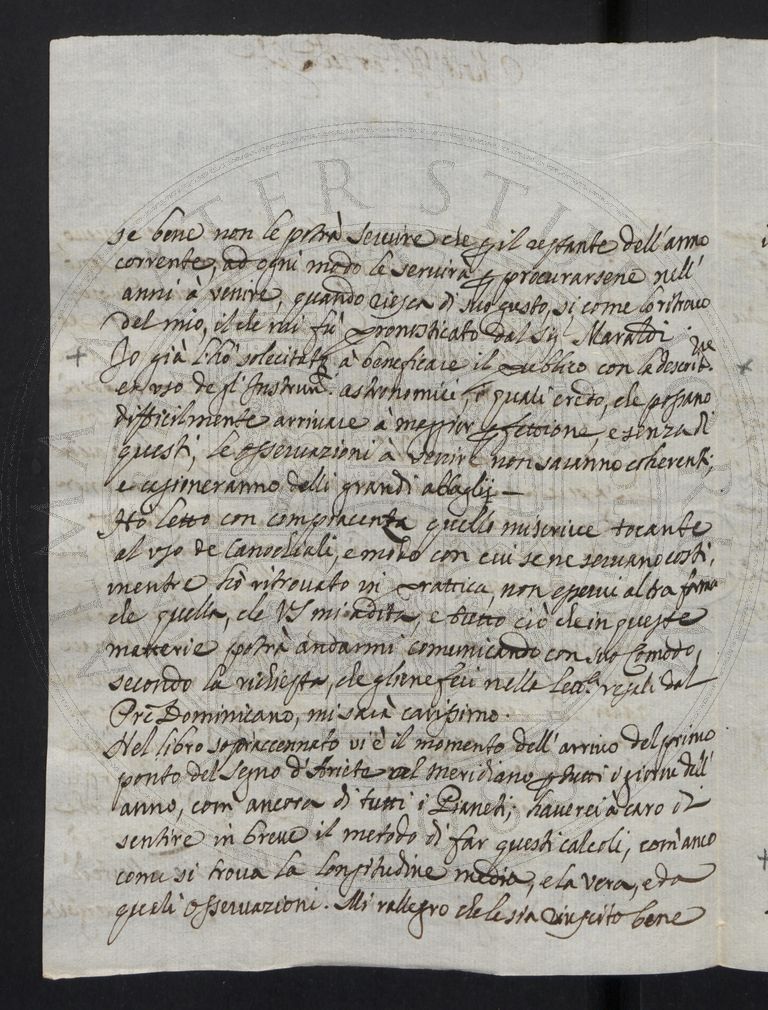 se bene non le potrà servire che p il restante dell'anno
corrente, ad ogni modo le servirà p procurarsene nell'
anni à venire, quando riesca di suo gusto, si come lo ritrovo
del mio, il che mi fù pronosticato dal Sig.r Maraldi
Io già l'hò solecitato à beneficare il publico con la descritt.ne
et uso de gl'Instrum.ti astronomici, i quali credo, che possano
difficilmente arrivare à maggior pfettione, e senza di
questi, le osservazioni à venire non saranno coherenti,
e cagioneranno delli grandi abbaglij —
Hò letto con compiacenza quello mi scrive toccante
al uso de Canochiali, e modo con cui se ne servano costi,
mentre hò ritrovato in prattica non esservi altra forma
che quella, che VS mi addita, e tutto ciò che in queste
matterie potrà andarmi comunicando con suo Comodo,
secondo la richiesta, che gliene feci nella lett.a
Pre Dominicano, mi sarà carissimo.
Nel libro sopraccennato vi è il momento dell'arrivo del primo
ponto del segno d'Ariete al meridiano p tutti i giorni dell'
anno, com'ancora di tutti i Pianeti; haverei à caro di
sentire in breve il metodo di far questi calcoli, com'anco
come si trova la longitudine media, e la vera, e da
quali osservazioni. Mi rallegro che le sia riuscito bene